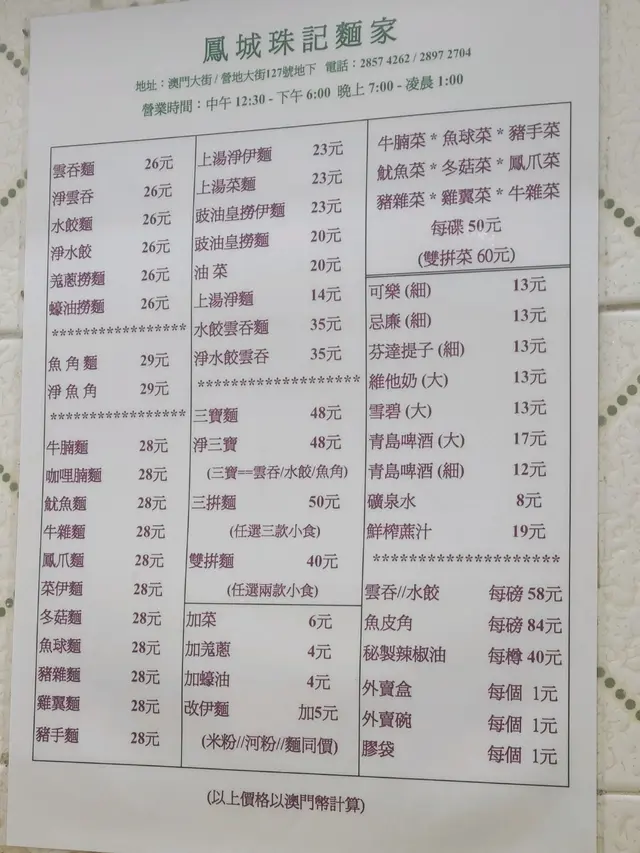 鳳城珠記麵家
地址：澳門大街 / 營地大街127號地下 電話：2857 4262 / 2897 2704
營業時間：中午 12:30 - 下午 6:00 晚上 7:00 - 凌晨 1:00
雲吞麵 26元
淨雲吞 26元
水餃麵 26元
淨水餃 26元
羗蔥撈麵 26元
蠔油撈麵 26元
*****************
魚角麵 29元
淨魚角 29元
*****************
牛腩麵 28元
咖哩腩麵 28元
魷魚麵 28元
牛雜麵 28元
鳳爪麵 28元
菜伊麵 28元
冬菇麵 28元
魚球麵 28元
豬雜麵 28元
雞翼麵 28元
豬手麵 28元
上湯淨伊麵 23元
上湯菜麵 23元
豉油皇撈伊麵 23元
豉油皇撈麵 20元
油菜 20元
上湯淨麵 14元
水餃雲吞麵 35元
淨水餃雲吞 35元
********************
三寶麵 48元
淨三寶 48元
(三寶==雲吞/水餃/魚角)
三拼麵 50元
(任選三款小食)
雙拼麵 40元
(任選兩款小食)
加菜 6元
加羗蔥 4元
加蠔油 4元
改伊麵 加5元
(米粉//河粉//麵同價)
牛腩菜 * 魚球菜 * 豬手菜
魷魚菜 * 冬菇菜 * 鳳爪菜
豬雜菜 * 雞翼菜 * 牛雜菜
每碟 50元
(雙拼菜 60元)
可樂 (細) 13元
忌廉 (細) 13元
芬達提子 (細) 13元
維他奶 (大) 13元
雪碧 (大) 13元
青島啤酒 (大) 17元
青島啤酒 (細) 12元
礦泉水 8元
鮮榨蔗汁 19元
********************
雲吞//水餃 每磅 58元
魚皮角 每磅 84元
秘製辣椒油 每樽 40元
外賣盒 每個 1元
外賣碗 每個 1元
膠袋 每個 1元
(以上價格以澳門幣計算)